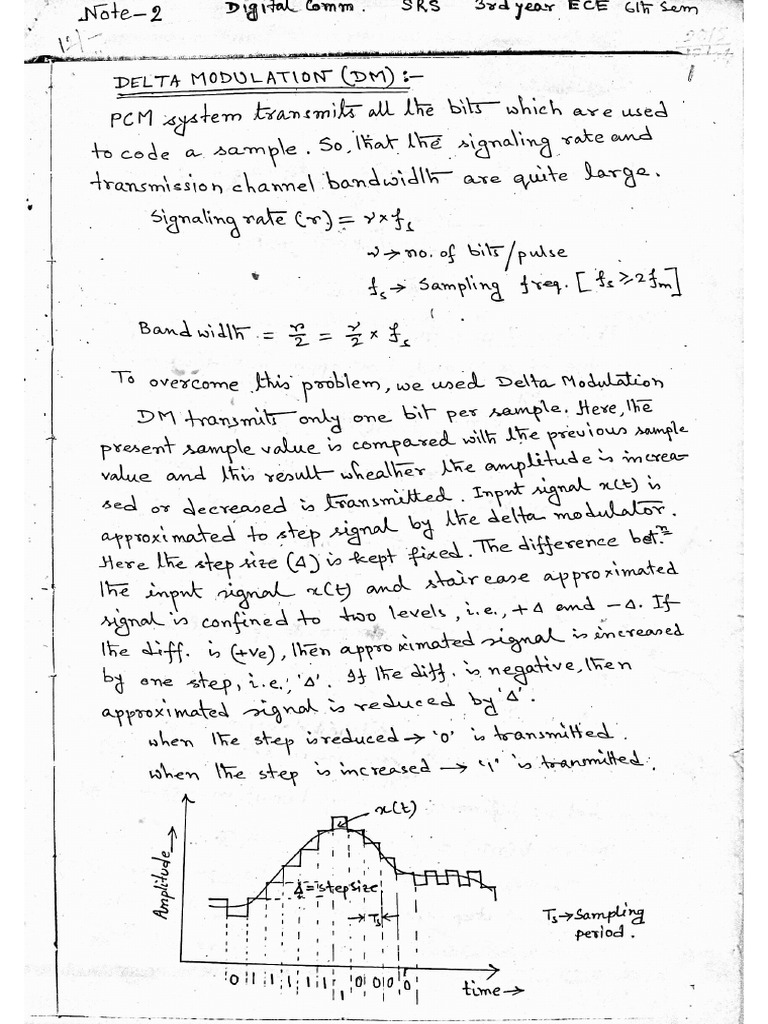 Note-2 Digital Comm. SRS 3rd year ECE 6th Sem
1
DELTA MODULATION (DM) :-
PCM system transmits all the bits which are used
to code a sample. So, that the signaling rate and
transmission channel bandwidth are quite large.
Signaling rate (r) = ν × fs
ν → no. of bits/pulse
fs → Sampling freq. [fs ≥ 2fm]
Bandwidth = r/2 = ν/2 × fs
To overcome this problem, we used Delta Modulation
DM transmits only one bit per sample. Here, the
present sample value is compared with the previous sample
value and this result wheather the amplitude is increa-
sed or decreased is transmitted. Input signal x(t) is
approximated to step signal by the delta modulator.
Here the step size (Δ) is kept fixed. The difference betn
the input signal x(t) and staircase approximated
signal is confined to two levels, i.e., +Δ and -Δ. If
the diff. is (+ve), then approximated signal is increased
by one step, i.e., 'Δ'. If the diff. is negative, then
approximated signal is reduced by 'Δ'.
when the step is reduced → '0' is transmitted.
when the step is increased → '1' is tranmitted.
x(t)
Amplitude →
Δ = step size
Ts
Ts → Sampling
period.
0 1 1 1 1 1 1 1 0 0 0 0
time →